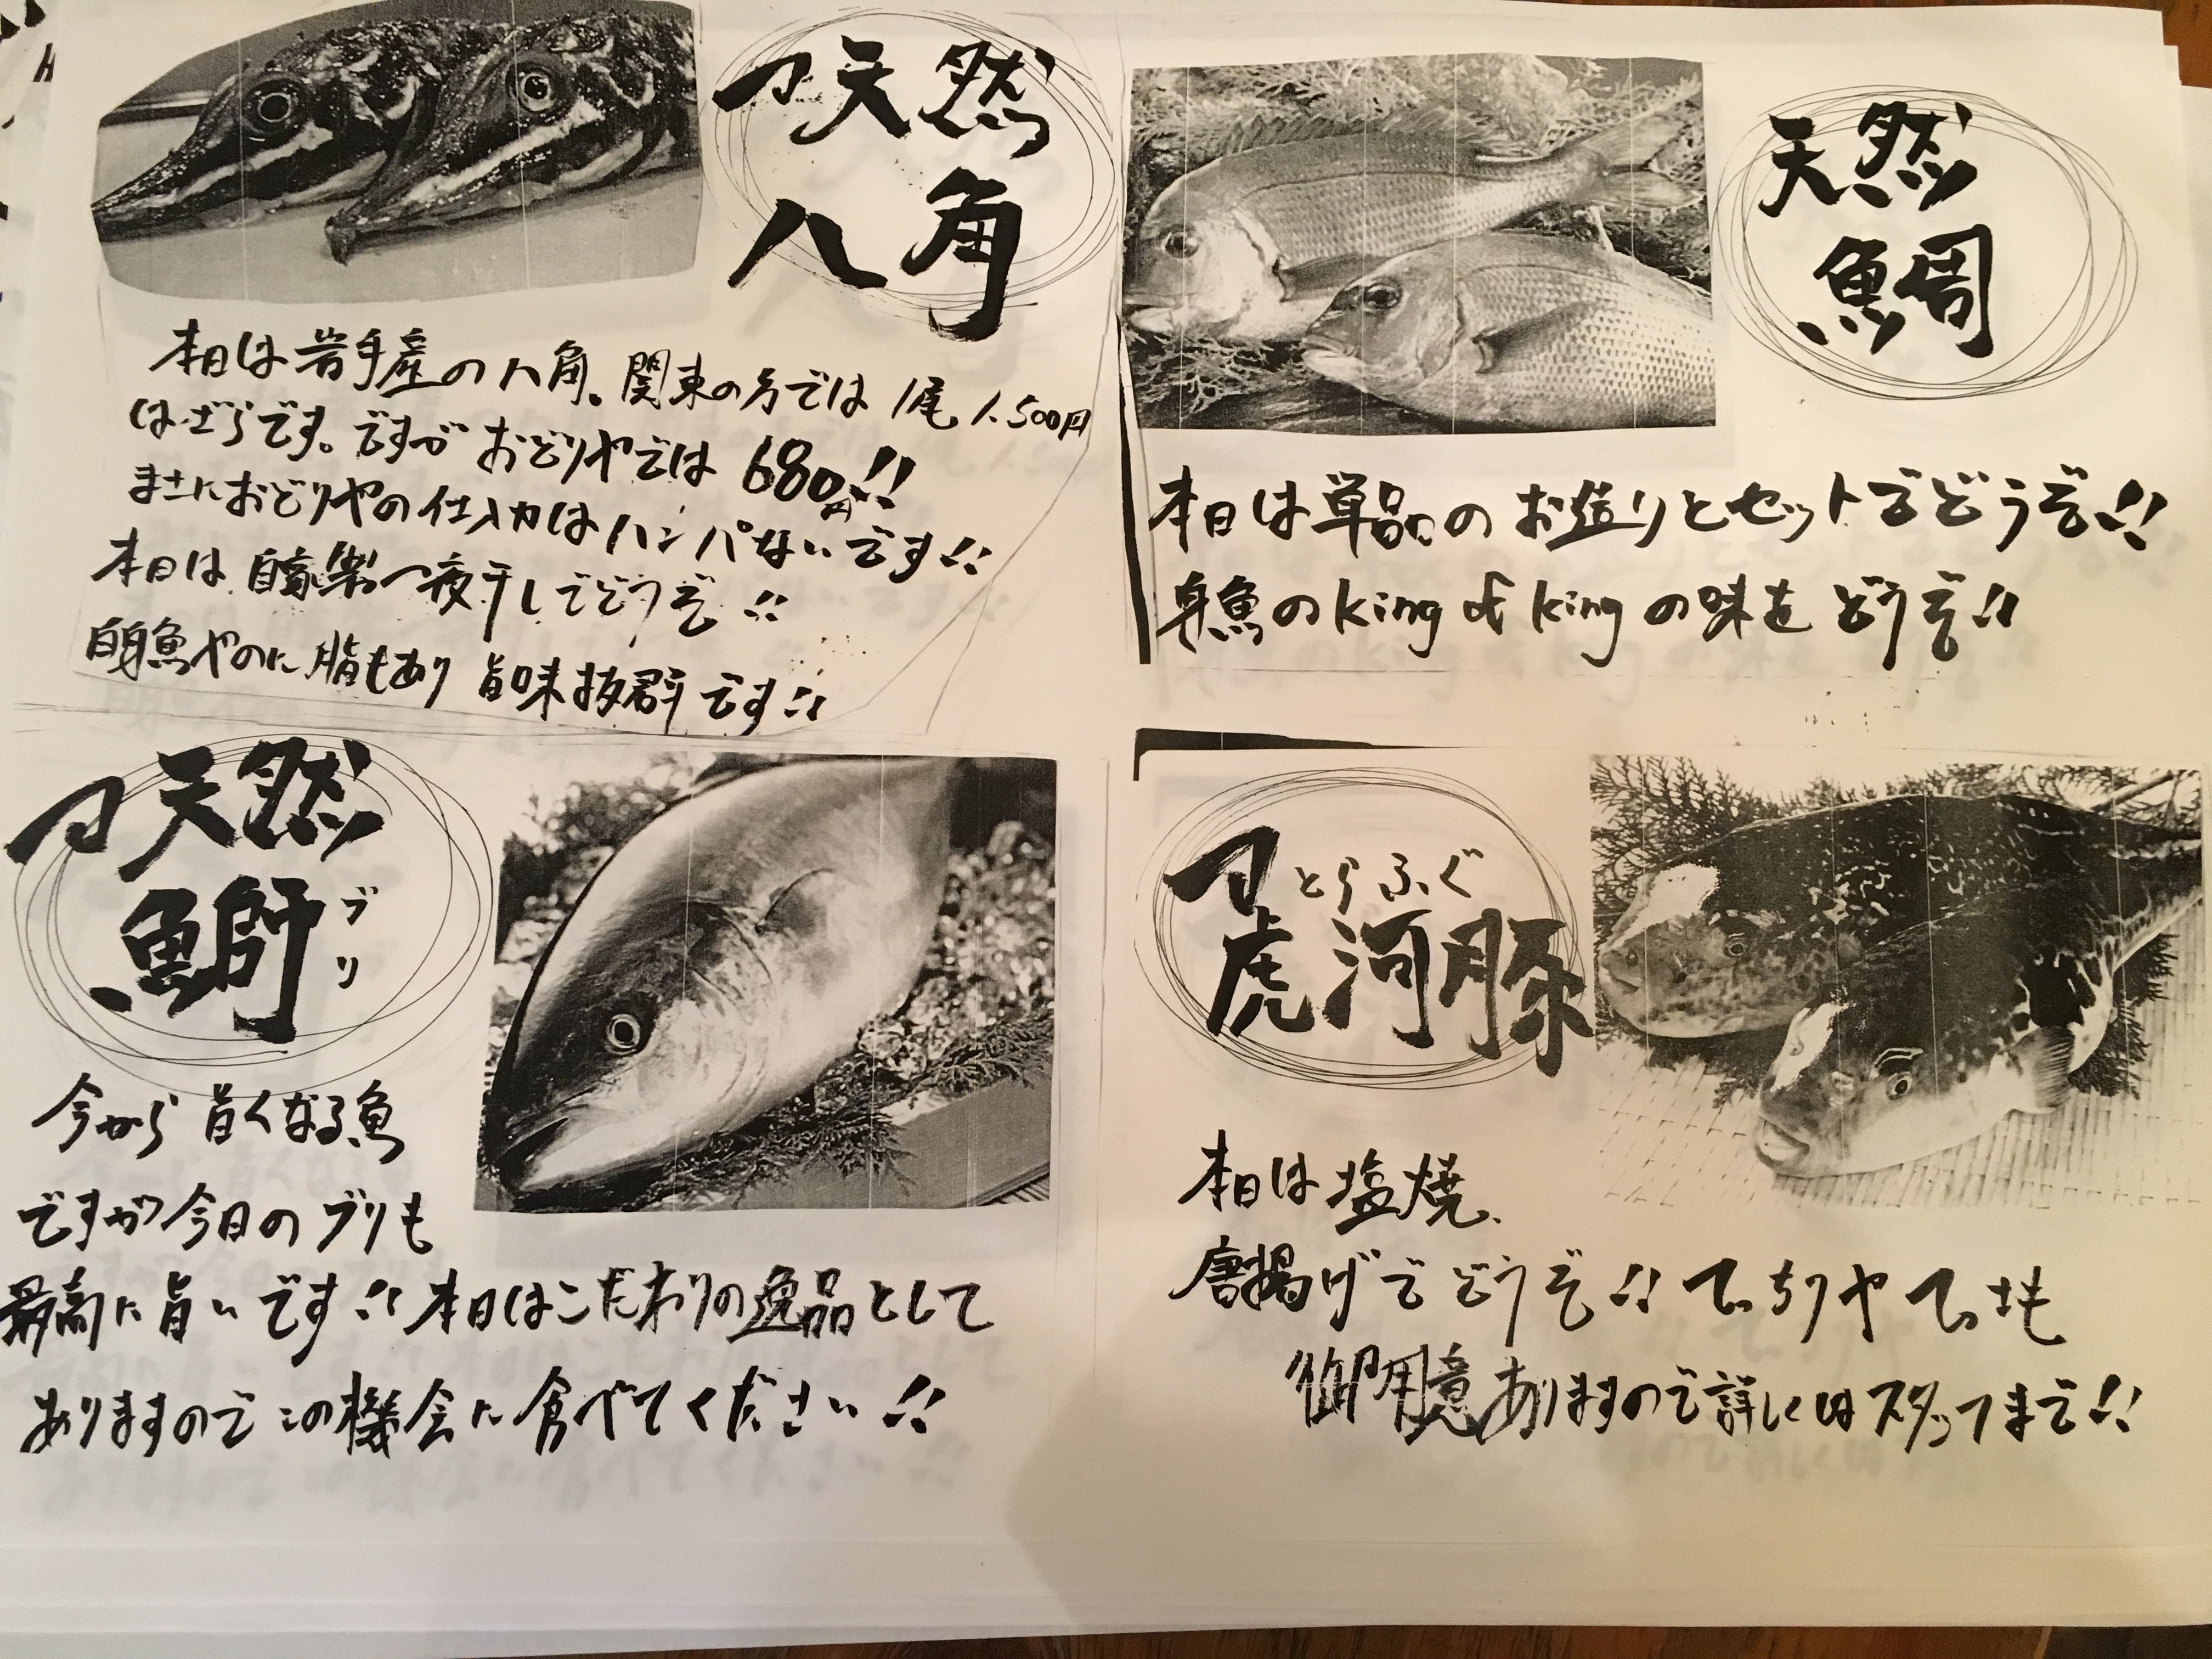 天然
八角
本日は岩手産の八角。関東の方では1尾1.500円
はざらです。ですがおどりやでは680円!!
まさにおどりやの仕入力はハンパないです!!
本日は自家製一夜干しでどうぞ!!
白身魚やのに脂もあり旨味抜群です!!
天然
鯛
本日は単品のお造りとセットでどうぞ!!
身魚のking of kingの味をどうぞ!!
天然
鰤
ブリ
今から旨くなる魚
ですが今日のブリも
最高に旨いです!!本日はこだわりの逸品として
ありますのでこの機会に食べてください!!
とらふぐ
虎河豚
本日は塩焼、
唐揚げでどうぞ!!てっちりやてっさも
御用意ありますので詳しくはスタッフまで!!